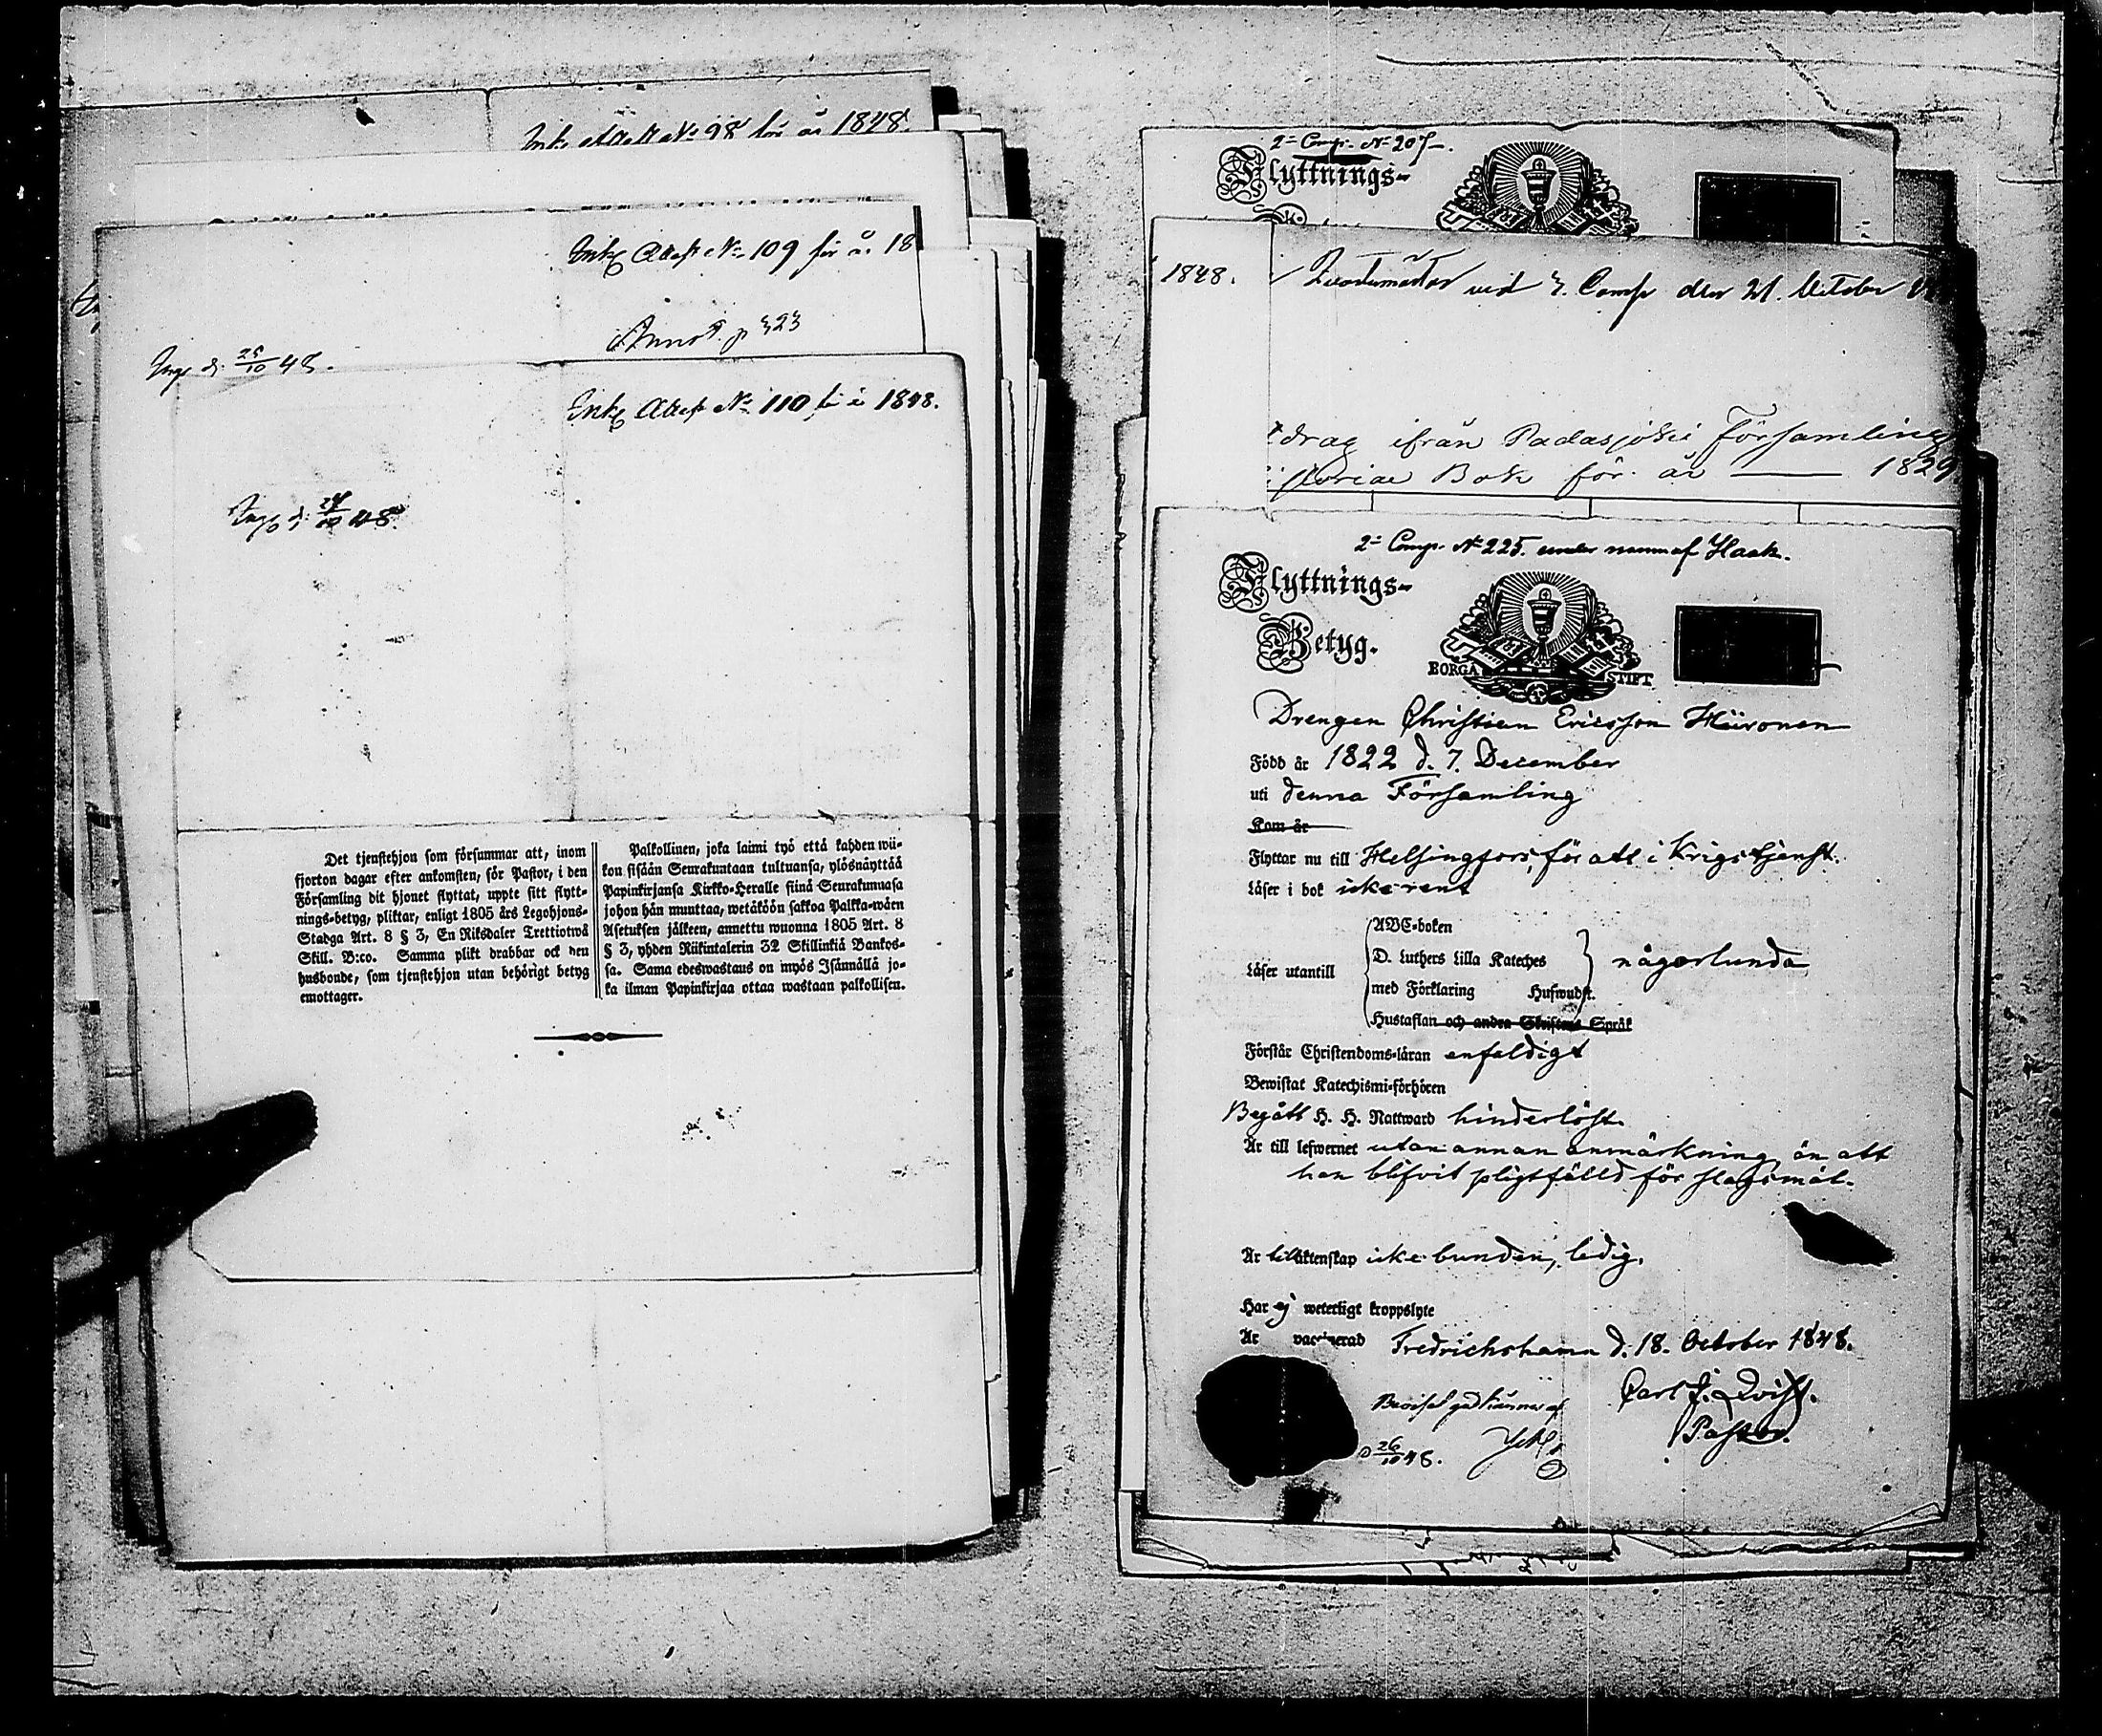 Ink. Attest No 98 för år 1848.
Ink. Attest No 109 för år 18
Annot. p 323
Ingf d. 25/10 48.
Ink. Attest No 110 för år 1848.
Ingf d. 48.
Det tjenstehjon som försummar att, inom
fjorton dagar efter ankomsten, för Pastor, i den
Församling dit hjonet flyttat, uppte sitt flytt-
nings-betyg, pliktar, enligt 1805 års Legohjons-
Stadga Art. 8 § 3, En Riksdaler Trettiotwå
Skill. B:co. Samma plikt drabbar ock den
husbonde, som tjenstehjon utan behörigt betyg
emottager.
Palkollinen, joka laimi lyö että kahden wii-
kon sisään Seurakuntaan tultuansa, ylösnäyttää
Papinkirjansa Kirkko-Herralle siinä Seurakunnasa
johon hän muuttaa, wetäköön sakkoa Palkka-wäen
Asetuksen jälkeen, annettu wuonna 1805 Art. 8
§ 3, yhden Riikintalerin 32 Skillinkiä Bankos-
sa. Sama edeswastaus on myös Isännällä jo-
ka ilman Papinkirjaa ottaa wastaan palkollisen.
2=Comp. No 207
Flyttnings-
1848.
vid Comp den 21. October
drag ifrån Padasjoki Församlings
storiae Bok för år 1829
2=Comp. No 225. under namn af Haak.
Flyttnings-
Betyg.
BORGÅ STIFT
Drengen Christian Ericsson Hiironen
Född år 1822 d. 7. December
uti denna Församling
Kom år
Flyttar nu till Helsingfors, för att i Krigstjenst.
Läser i bok icke rent
Läser utantill
ABC-boken
D. Luthers Lilla Kateches
med Förklaring Hufwudst.
Hustaflan och andra Skriftens Språk
någorlunda
Förstår Christendoms-läran enfaldigt
Bewistat Katechismi-förhören
Begått H. H. Nattward hinderlöst.
Är till lefwernet utan annan anmärkning än att
han blifvit pligtfälld för slagsmål.
Är till äktenskap icke bunden, ledig.
Har ej weterligt kroppslyte
Är vaccinerad Fredrichshamn d. 18. October 1848.
Carl J. Qvist.
Pastor.
26/10 48.